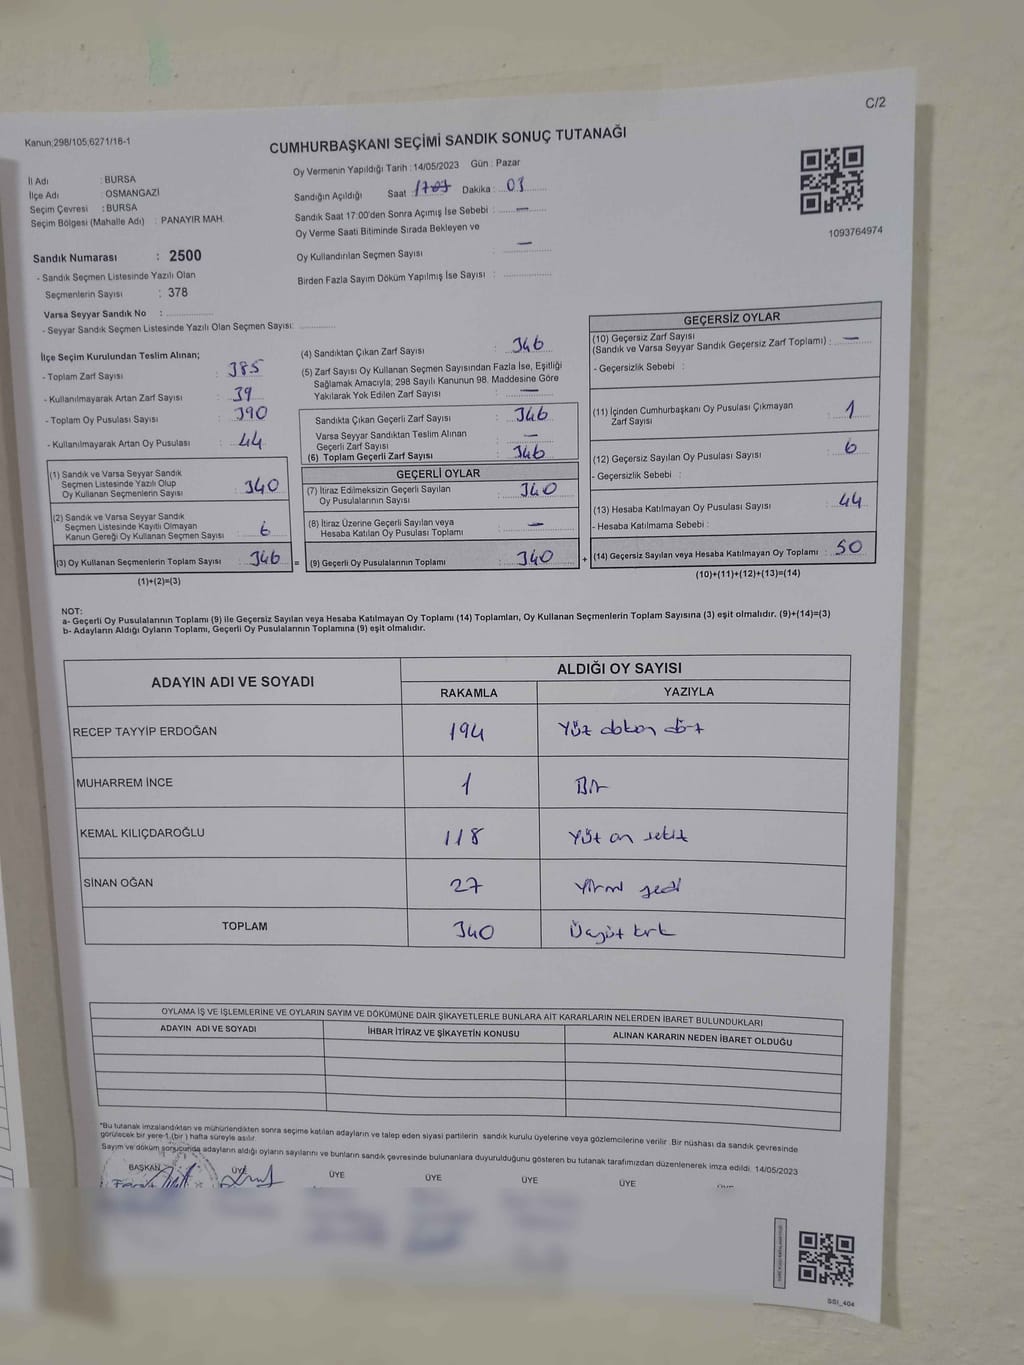 C/2
Kanun;298/105;6271/16-1
CUMHURBAŞKANI SEÇİMİ SANDIK SONUÇ TUTANAĞI
İl Adı : BURSA
İlçe Adı : OSMANGAZİ
Seçim Çevresi : BURSA
Seçim Bölgesi (Mahalle Adı) : PANAYIR MAH.
Oy Vermenin Yapıldığı Tarih : 14/05/2023 Gün : Pazar
Sandığın Açıldığı Saat Dakika : 03
Sandık Saat 17:00'den Sonra Açımış İse Sebebi : —
Oy Verme Saati Bitiminde Sırada Bekleyen ve
Oy Kullandırılan Seçmen Sayısı —
Birden Fazla Sayım Döküm Yapılmış İse Sayısı :
1093764974
Sandık Numarası : 2500
- Sandık Seçmen Listesinde Yazılı Olan
Seçmenlerin Sayısı : 378
Varsa Seyyar Sandık No :
- Seyyar Sandık Seçmen Listesinde Yazılı Olan Seçmen Sayısı:
İlçe Seçim Kurulundan Teslim Alınan;
- Toplam Zarf Sayısı : 385
- Kullanılmayarak Artan Zarf Sayısı : 39
- Toplam Oy Pusulası Sayısı : 390
- Kullanılmayarak Artan Oy Pusulası : 44
(1) Sandık ve Varsa Seyyar Sandık
Seçmen Listesinde Yazılı Olup
Oy Kullanan Seçmenlerin Sayısı : 340
(2) Sandık ve Varsa Seyyar Sandık
Seçmen Listesinde Kayıtlı Olmayan
Kanun Gereği Oy Kullanan Seçmen Sayısı : 6
(3) Oy Kullanan Seçmenlerin Toplam Sayısı : 346
(1)+(2)=(3)
(4) Sandıktan Çıkan Zarf Sayısı : 346
(5) Zarf Sayısı Oy Kullanan Seçmen Sayısından Fazla İse, Eşitliği
Sağlamak Amacıyla; 298 Sayılı Kanunun 98. Maddesine Göre
Yakılarak Yok Edilen Zarf Sayısı : —
Sandıkta Çıkan Geçerli Zarf Sayısı : 346
Varsa Seyyar Sandıktan Teslim Alınan
Geçerli Zarf Sayısı : —
(6) Toplam Geçerli Zarf Sayısı : 346
GEÇERLİ OYLAR
(7) İtiraz Edilmeksizin Geçerli Sayılan
Oy Pusulalarının Sayısı : 340
(8) İtiraz Üzerine Geçerli Sayılan veya
Hesaba Katılan Oy Pusulası Toplamı : —
= (9) Geçerli Oy Pusulalarının Toplamı : 340
GEÇERSİZ OYLAR
(10) Geçersiz Zarf Sayısı
(Sandık ve Varsa Seyyar Sandık Geçersiz Zarf Toplamı) : —
- Geçersizlik Sebebi :
(11) İçinden Cumhurbaşkanı Oy Pusulası Çıkmayan
Zarf Sayısı : 1
(12) Geçersiz Sayılan Oy Pusulası Sayısı : 6
- Geçersizlik Sebebi :
(13) Hesaba Katılmayan Oy Pusulası Sayısı : 44
- Hesaba Katılmama Sebebi :
+ (14) Geçersiz Sayılan veya Hesaba Katılmayan Oy Toplamı : 50
(10)+(11)+(12)+(13)=(14)
NOT:
a- Geçerli Oy Pusulalarının Toplamı (9) ile Geçersiz Sayılan veya Hesaba Katılmayan Oy Toplamı (14) Toplamları, Oy Kullanan Seçmenlerin Toplam Sayısına (3) eşit olmalıdır. (9)+(14)=(3)
b- Adayların Aldığı Oyların Toplamı, Geçerli Oy Pusulalarının Toplamına (9) eşit olmalıdır.
ADAYIN ADI VE SOYADI ALDIĞI OY SAYISI
RAKAMLA YAZIYLA
RECEP TAYYİP ERDOĞAN 194 Yüz doksan dört
MUHARREM İNCE 1 Bir
KEMAL KILIÇDAROĞLU 118 Yüz on sekiz
SİNAN OĞAN 27 Yirmi yedi
TOPLAM 340 Üçyüz kırk
OYLAMA İŞ VE İŞLEMLERİNE VE OYLARIN SAYIM VE DÖKÜMÜNE DAİR ŞİKAYETLERLE BUNLARA AİT KARARLARIN NELERDEN İBARET BULUNDUKLARI
ADAYIN ADI VE SOYADI İHBAR İTİRAZ VE ŞİKAYETİN KONUSU ALINAN KARARIN NEDEN İBARET OLDUĞU
*Bu tutanak imzalandıktan ve mühürlendikten sonra seçime katılan adayların ve talep eden siyasi partilerin sandık kurulu üyelerine veya gözlemcilerine verilir. Bir nüshası da sandık çevresinde
görülecek bir yere 1 (bir) hafta süreyle asılır.
Sayım ve döküm sonucunda adayların aldığı oyların sayılarını ve bunların sandık çevresinde bulunanlara duyurulduğunu gösteren bu tutanak tarafımızdan düzenlenerek imza edildi. 14/05/2023
BAŞKAN ÜYE ÜYE ÜYE ÜYE ÜYE
SSI_404